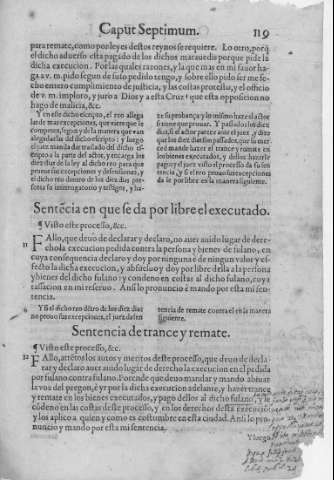 Caput Septimum. 119
para remate, como por leyes destos reynos se requiere. Lo otro, porq̃
el dicho aduerso esta pagado de los dichos marauedis porque pide la
dicha execucion. Por las quales razones, y la que mas en mi fauor ha-
ga a v. m. pido segun de suso pedido tengo, y sobre ello pido ser me fe-
cho entero cumplimiento de justicia, y las costas protesto, y el officio
de v. m. imploro, y juro a Dios y a esta Cruz † que esta opposicion no
hago de malicia, &c.
Y en este dicho escripto, el reo allega
las
competen, segun
allegadas
el juez manda dar traslado del dicho es-
cripto a la parte del actor, y encarga los
diez dias de la ley al dicho reo para que
prouar sus excepciones y defensiones, y
el dicho reo dentro de los diez dias pre-
senta su interrogatorio y testigos, y ha-
ze su probança, y lo mismo haze el actor
si tiene que prouar. Y passados los diez
dias, si el actor parece ante el juez, y dize
que los diez dias son passados, que su mer-
ced mande hazer el trance y remate en
los bienes executados, y dellos hazerle
pago: y el juez visto el processo da su sen-
tencia, y si el reo prouo sus excepciones
da le por libre en la manera siguiente.
Sentẽcia en que se da por libre el executado.
¶ Visto este processo, &c.
11 FAllo, que deuo de declarar y declaro, no auer auido lugar de dere-
cho la execucion pedida contra la persona y bienes de fulano, en
cuya consequencia declaro y doy por ninguna e de ningun valor y ef-
fecto la dicha execucion, y absueluo y doy por libre della a la persona
y bienes del dicho fulano y condeno en costas al dicho fulano, cuya
tassacion en mi reseruo. Ansi lo pronuncio è mando por esta mi sen-
tencia.
Y si el dicho reo dẽtro de los diez dias
no prouo sus excepciones, el juez da sen-
tencia de remate contra el en la manera
siguiente.
Sentencia de trance y remate.
¶ Visto este processo, &c.
12 FAllo, attẽtos los autos y meritos deste processo, que deuo de decla-
rar y declaro auer auido lugar de derecho la execucion en el pedida
por fulano contra fulano. Por ende que deuo mandar y mando abiuar
la voz del pregon, è yr por la dicha execucion adelante, y hazer trance
y remate en los bienes executados, y pago dellos al dicho fulano, y le
cõdeno en las costas deste processo, y en los derechos desta execucion
y los aplico a quien y como es costumbre en esta ciudad. Ansi lo pro-
nuncio y mando por esta mi sentencia.
Y luego